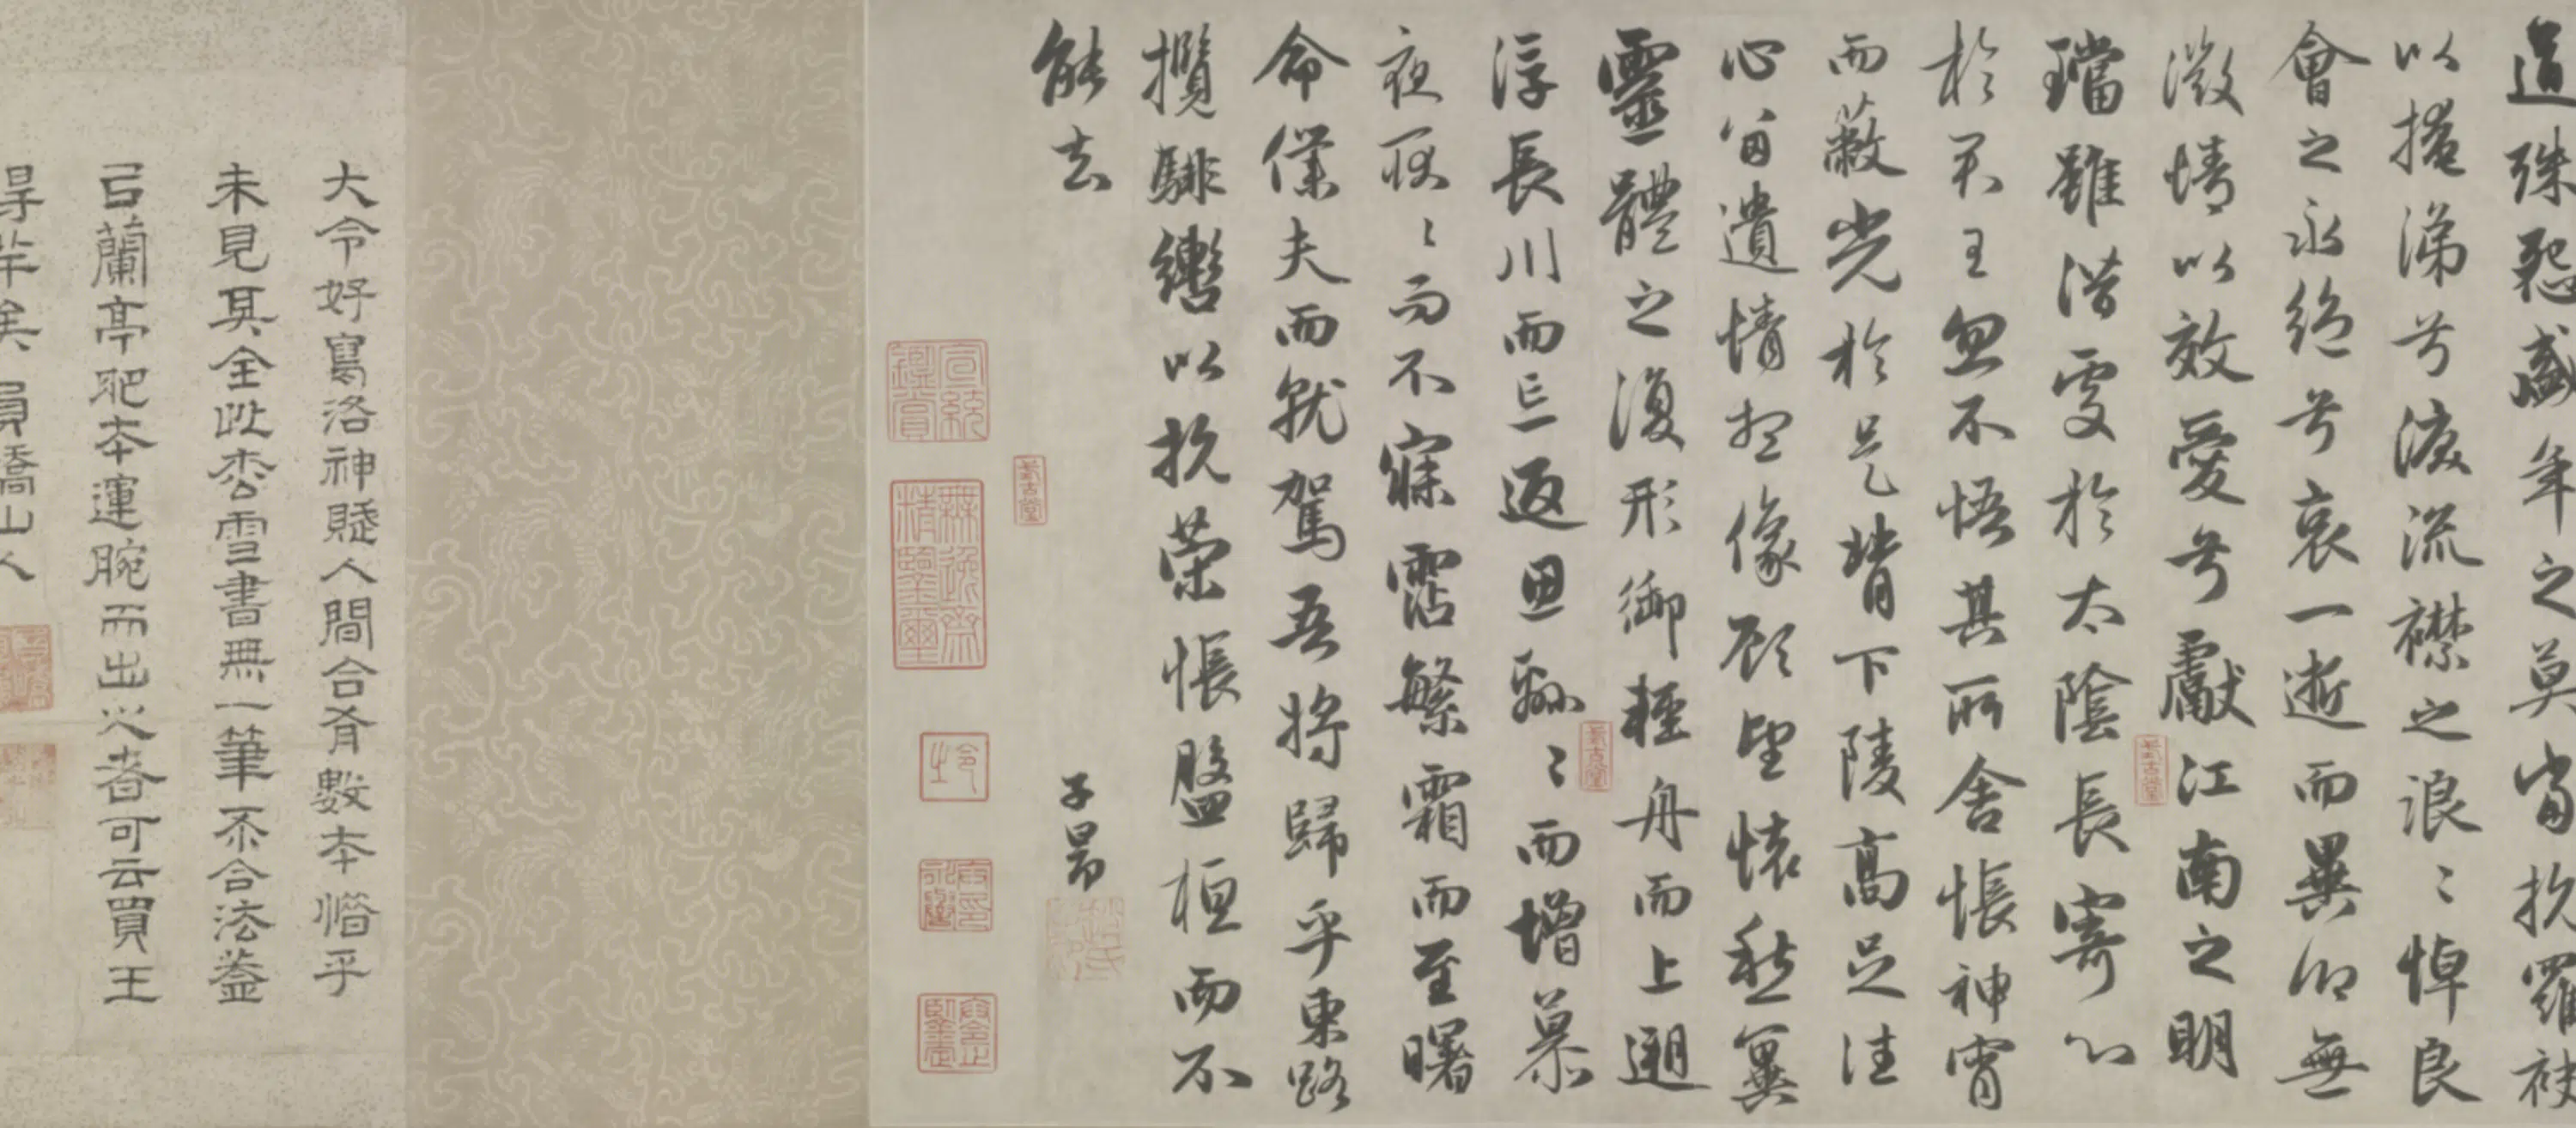 道殊怨盛年之莫當抗羅袂
以掩涕兮淚流襟之浪〻悼良
會之永絶兮哀一逝而異鄉無
微情以效愛兮獻江南之明
璫雖潛處於太陰長寄心
於君王忽不悟其所舍悵神宵
而蔽光於是背下陵高足往
心留遺情想像顧望懷愁冀
靈體之復形御輕舟而上遡
浮長川而忘返思緜〻而增慕
夜耿〻而不寐霑繁霜而至曙
命僕夫而就駕吾將歸乎東路
攬騑轡以抗策悵盤桓而不
能去
子昂
趙氏子昂
式古堂
式古堂
式古堂
宣統鑑賞
無逸齋精鑒璽
大令好寫洛神賦人間合有數本惜乎
未見其全此松雪書無一筆不合法蓋
以蘭亭肥本運腕而出之者可云買王
得羊矣員嶠山人